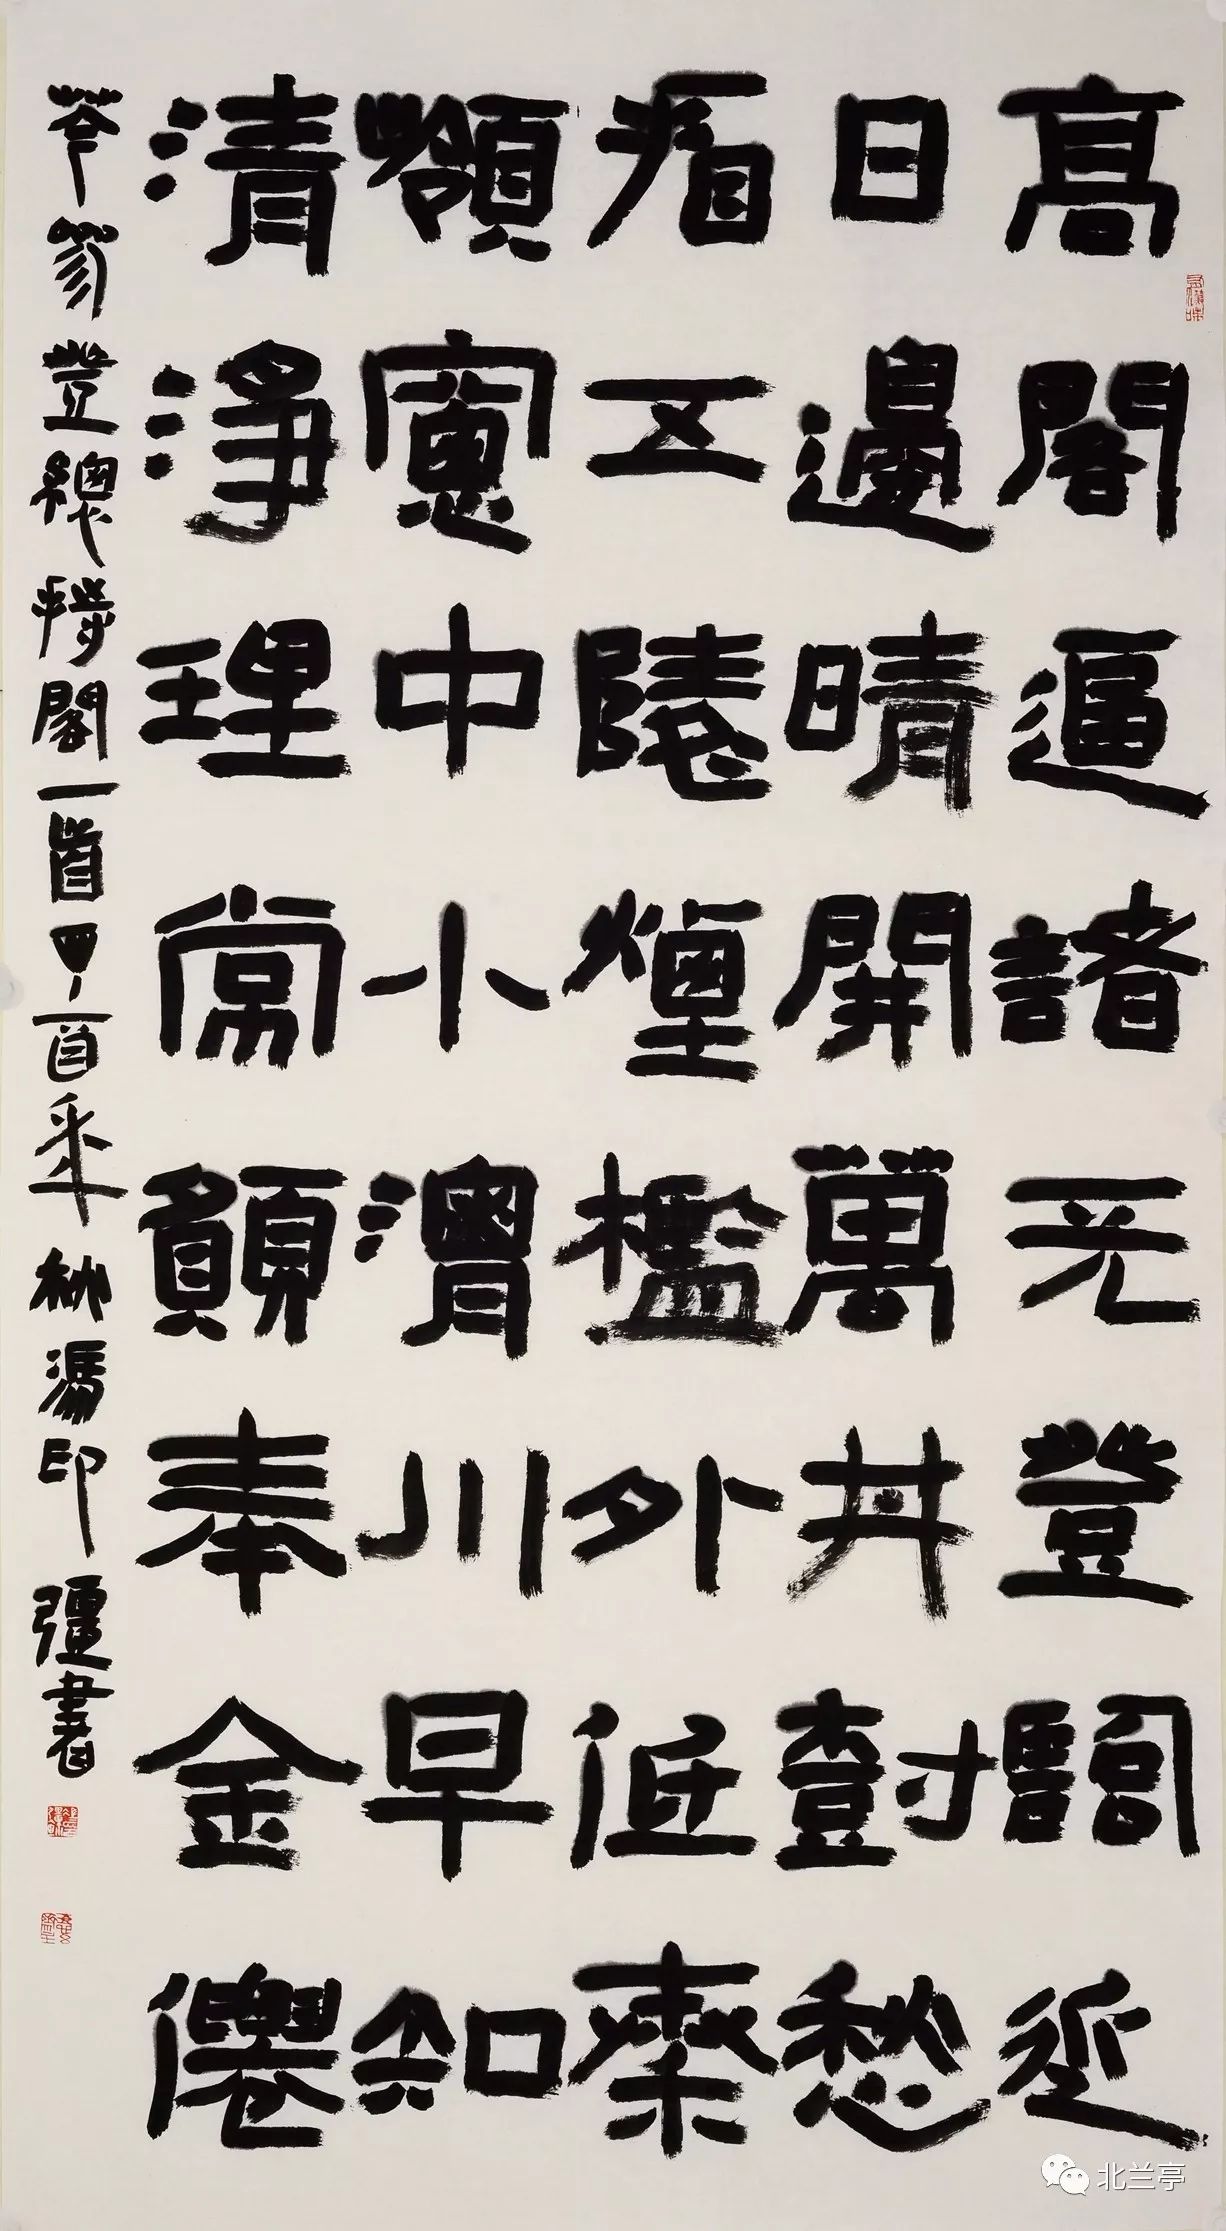 高閣逼諸天登臨近
日邊晴開萬井尌愁
看五陵煙檻外低秦
嶺窗中小渭川早知
清淨理常願奉金僊
岑參登總持閣一首丁酉年秋馮印強書
北兰亭